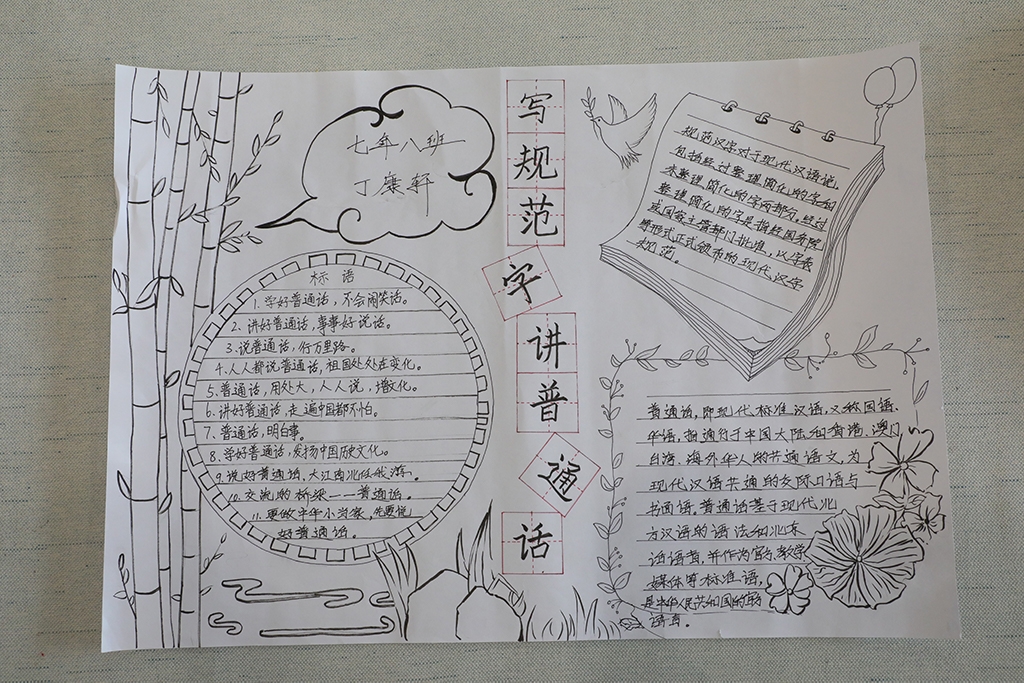 七年八班
丁康轩
写规范字讲普通话
标语
1、学好普通话，不会闹笑话。
2、讲好普通话，事事好说话。
3、说普通话，行万里路。
4、人人都说普通话，祖国处处在变化。
5、普通话，用处大，人人说，增文化。
6、讲好普通话，走遍中国都不怕。
7、普通话，明白事。
8、学好普通话，发扬中国历史文化。
9、说好普通话，大江南北任我游。
10、交流的桥梁——普通话。
11、要做中华小当家，先要说
好普通话。
规范汉字对于现代汉语说，
包括经过整理简化的字和
未整理简化的字两部分。经过
整理简化的字是指经国务院
或国家主管部门批准，以字表
等形式正式颁布的现代汉字
规范。
普通话，即现代标准汉语，又称国语、
华语，指通行于中国大陆和香港、澳门、
台湾、海外华人的共通语文，为
现代汉语共通的交际口语与
书面语。普通话基于现代北
方汉语的语法和北京
话语音，并作为官方、教学、
媒体等标准语，
是中华人民共和国的官方
语言。